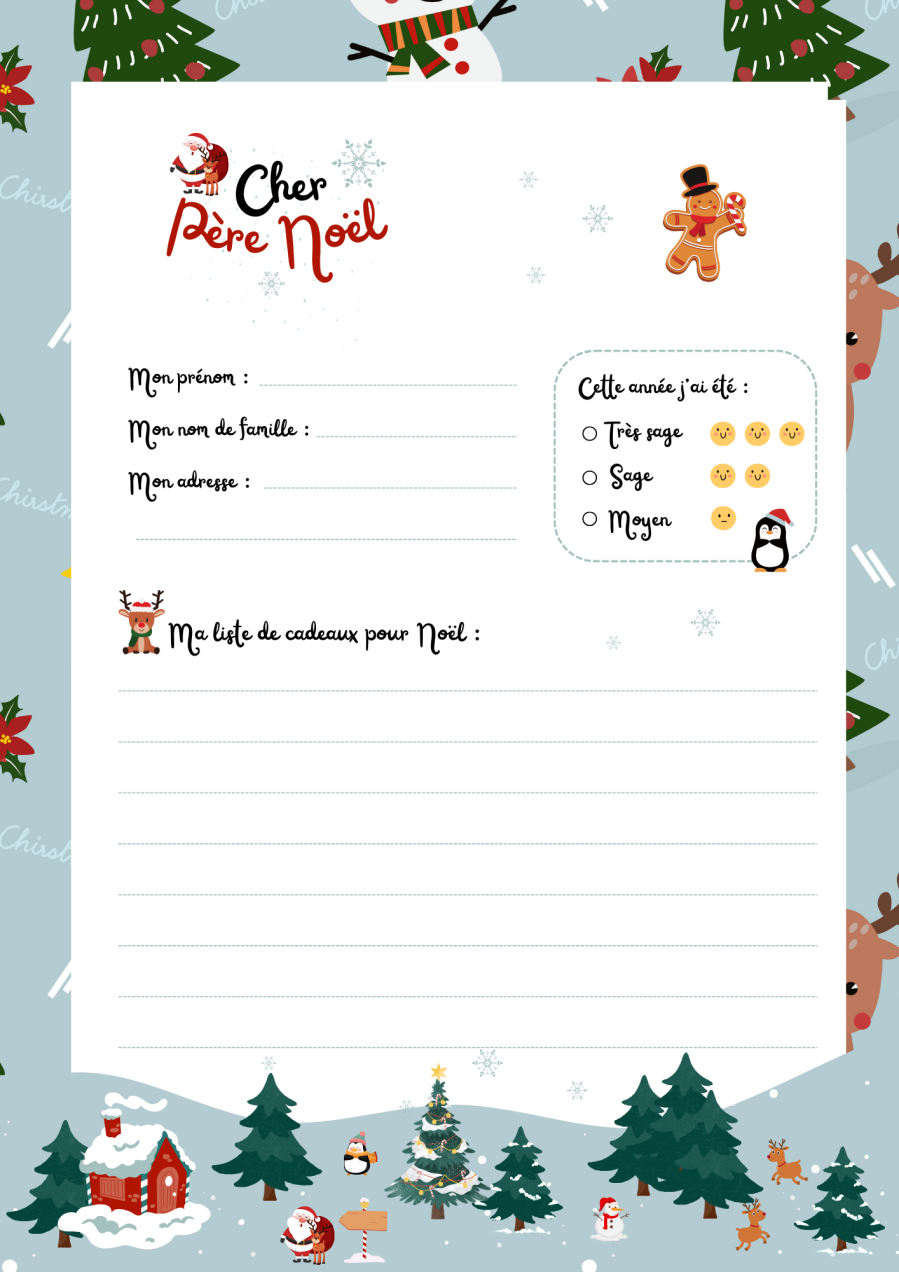 Cher
Père Noël
Mon prénom :
Mon nom de famille :
Mon adresse :
Cette année j'ai été :
Très sage
Sage
Moyen
Ma liste de cadeaux pour Noël :